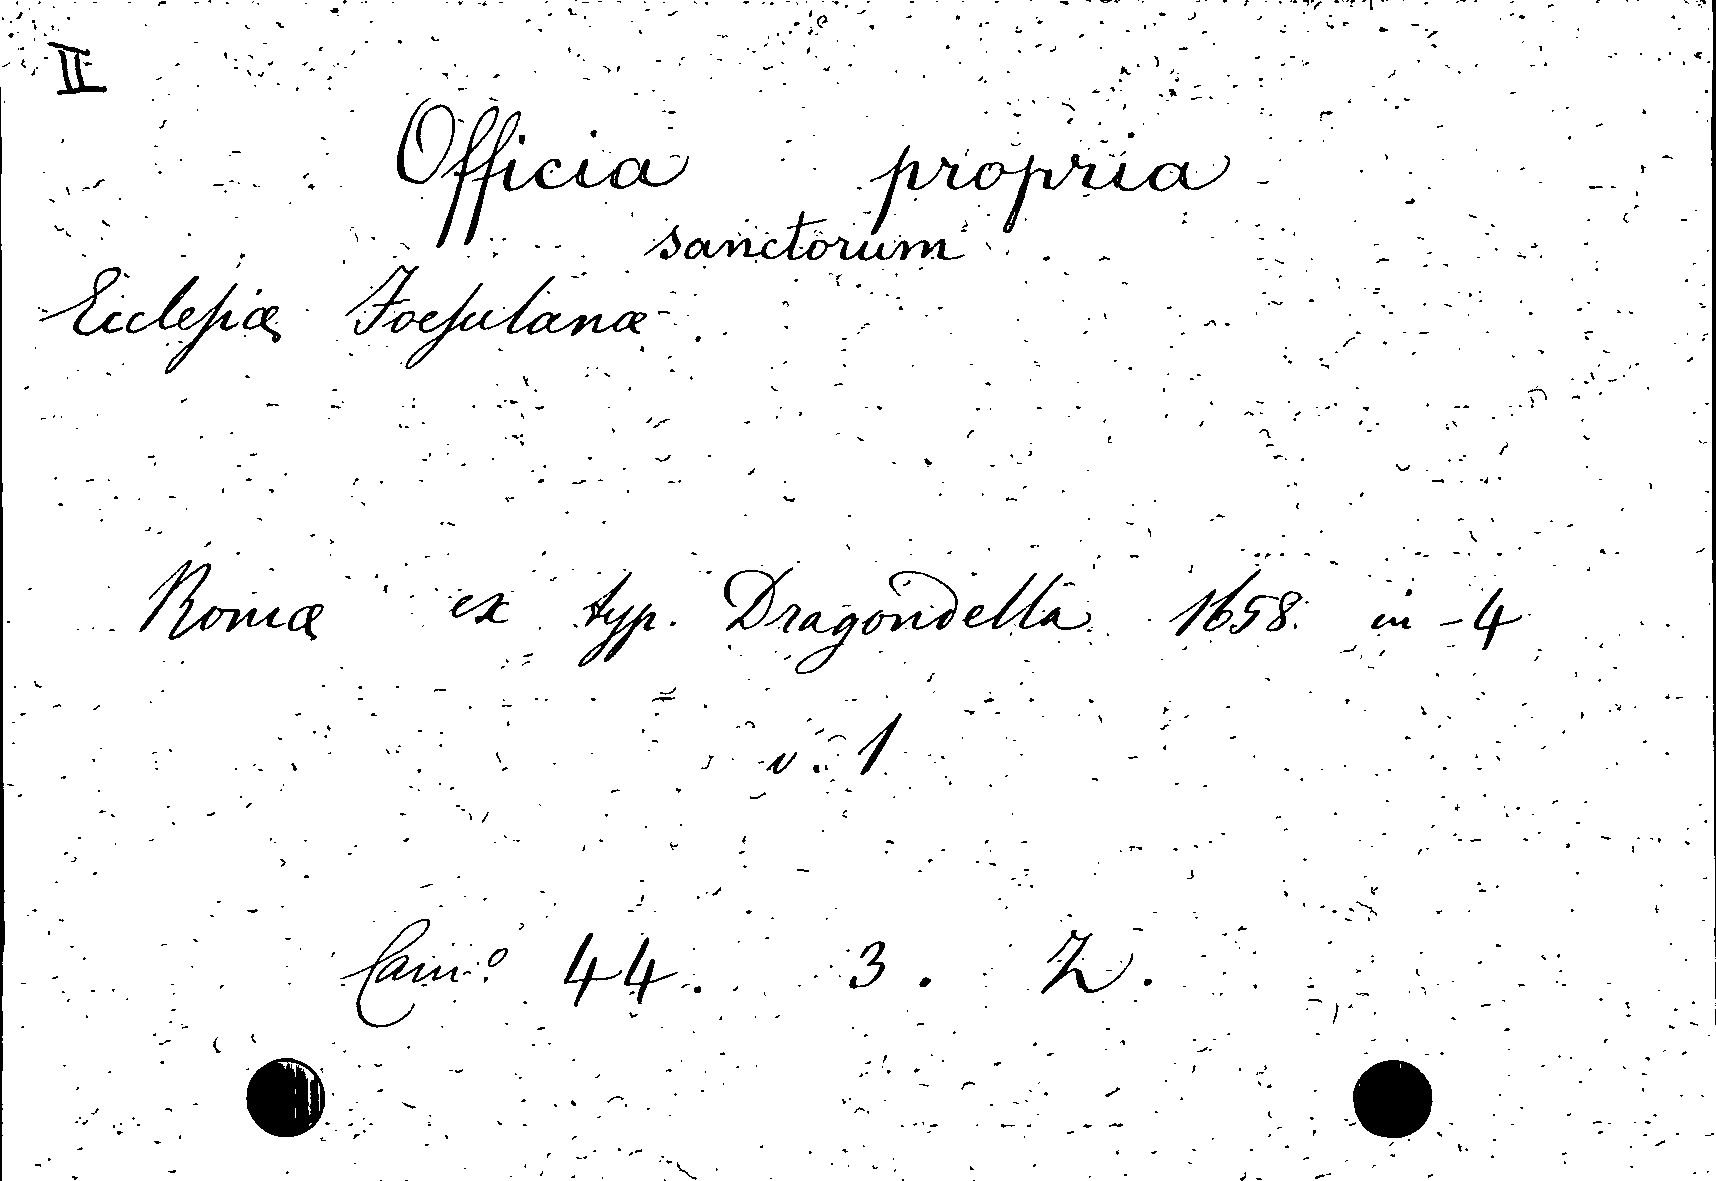 II
Officia propria
sanctorum
Ecclesiæ Foesulanæ
Romæ ex typ. Dragondella 1658. in-4
v. 1
Cam.º 44. 3. Z.